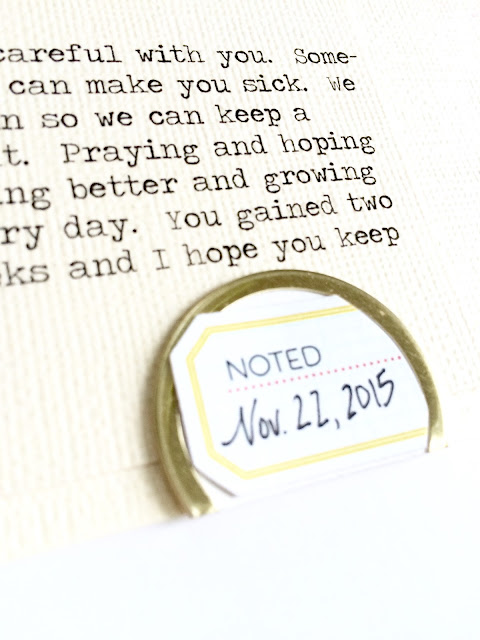 careful with you. Some-
can make you sick. We
n so we can keep a
t. Praying and hoping
ng better and growing
ry day. You gained two
ks and I hope you keep
NOTED
Nov. 22, 2015